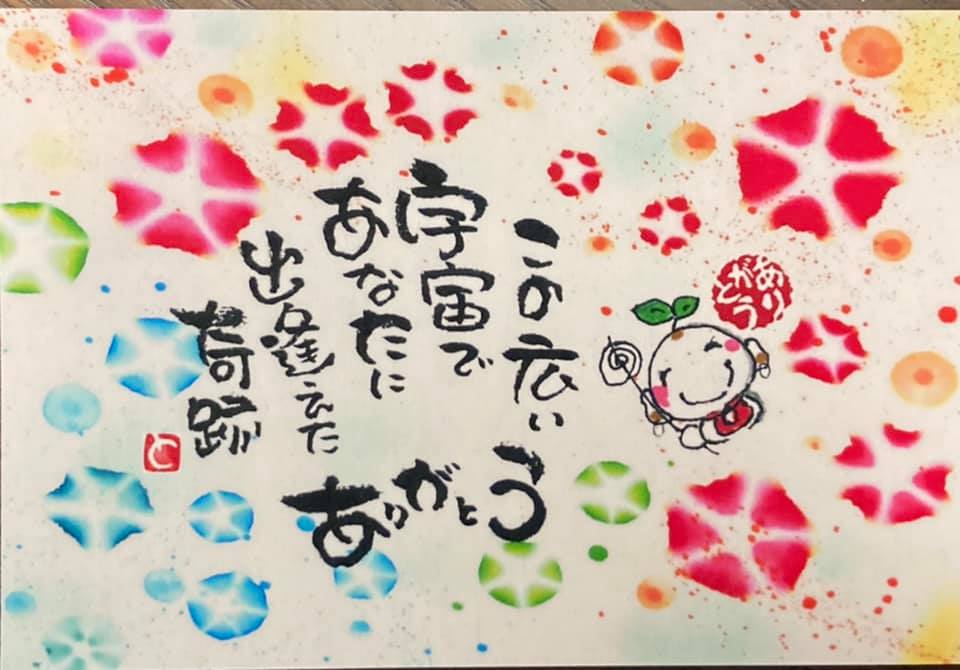 この広い
宇宙で
あなたに
出逢えた
奇跡
ありがとう
ありがとう
と